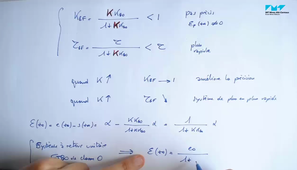 K_BF = K K_BO / (1 + K K_BO) < 1 pas précis
ε_p(∞) ≠ 0
τ_BF = τ / (1 + K K_BO) < τ plus rapide
quand K ↑ K_BF → 1 améliore la précision
quand K ↑ τ_BF ↘ système de plus en plus rapide
ε(∞) = e(∞) - s(∞) = α - K K_BO / (1 + K K_BO) α = 1 / (1 + K K_BO) α
Système à retour unitaire ⟹ ε(∞) = e_0 / (1 +
FTBO de classe 0